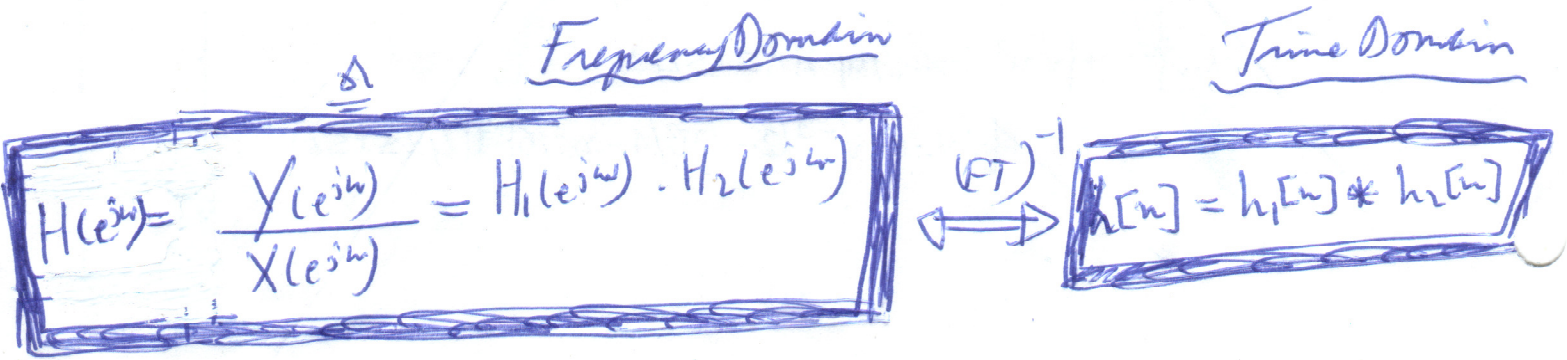 Frequency Domain
Time Domain
≙
H(e^{jω}) = Y(e^{jω}) / X(e^{jω}) = H₁(e^{jω}) . H₂(e^{jω})
(FT)⁻¹
⟺
h[n] = h₁[n] * h₂[n]